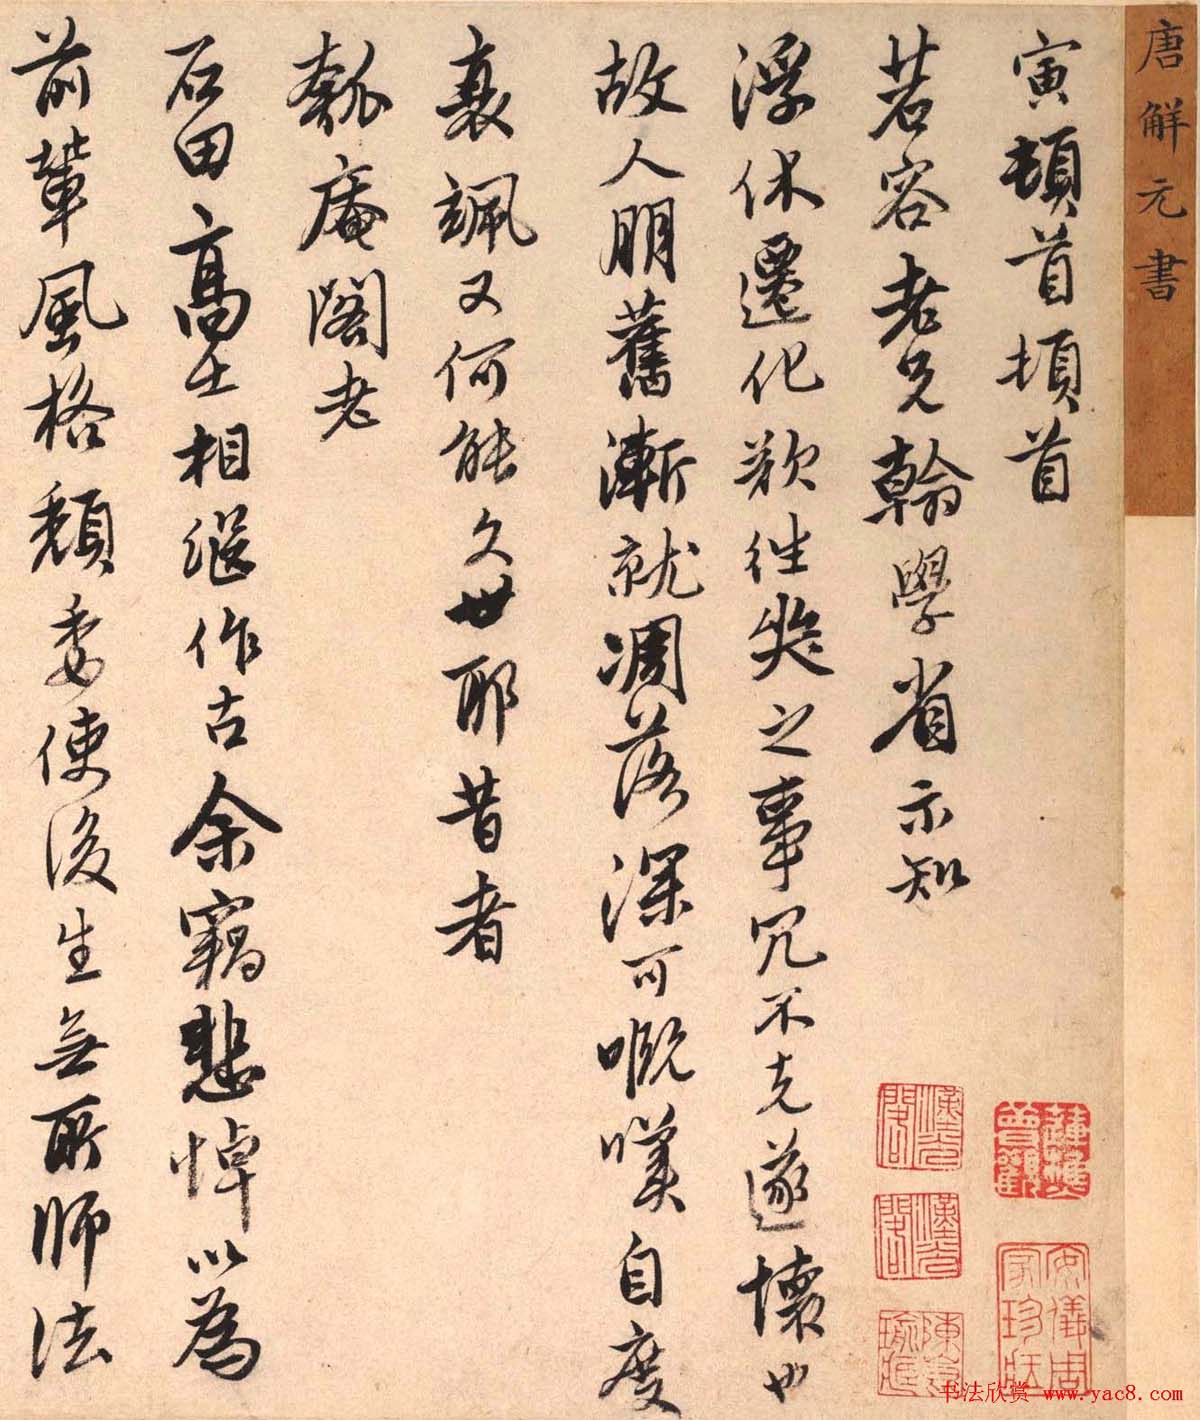 唐解元書
寅頓首頓首
若容老兄翰學省示知
浮休遷化欲往奠之事冗不克遂懷也
故人朋舊漸就凋落深可嘅嘆自度
衰颯又何能久世耶昔者
瓠庵閣老
石田高士相繼作古余竊悲悼以為
前輩風格頹委使後生無所師法
蓮樵曾觀
安儀周家珍藏
书法欣赏 www.yac8.com